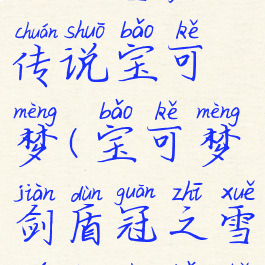 chuán shuō bǎo kě
传说宝可
mèng bǎo kě mèng
梦(宝可梦
jiàn dùn guān zhī xuě
剑盾冠之雪